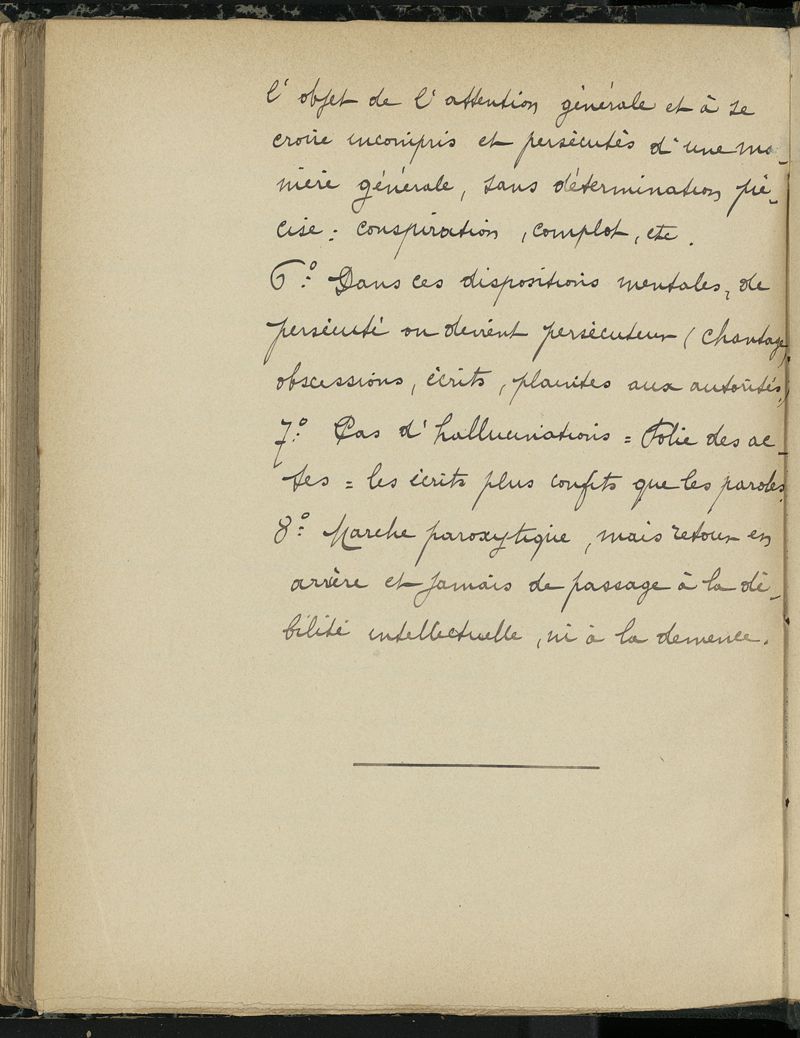 l'objet de l'attention générale et à se
croire incompris et persécutés d'une ma-
nière générale, sans détermination pré-
cise : conspiration, complot, etc.
6.º Dans ces dispositions mentales, de
persécuté on devient persécuteur (chantage,
obsessions, écrits, plaintes aux autorités,)
7.º Pas d'hallucinations = Folie des ac-
tes = les écrits plus que les paroles.
8.º Marche paroxytique, mais retour en
arrière et jamais de passage à la dé-
bilité intellectuelle, ni à la demence.